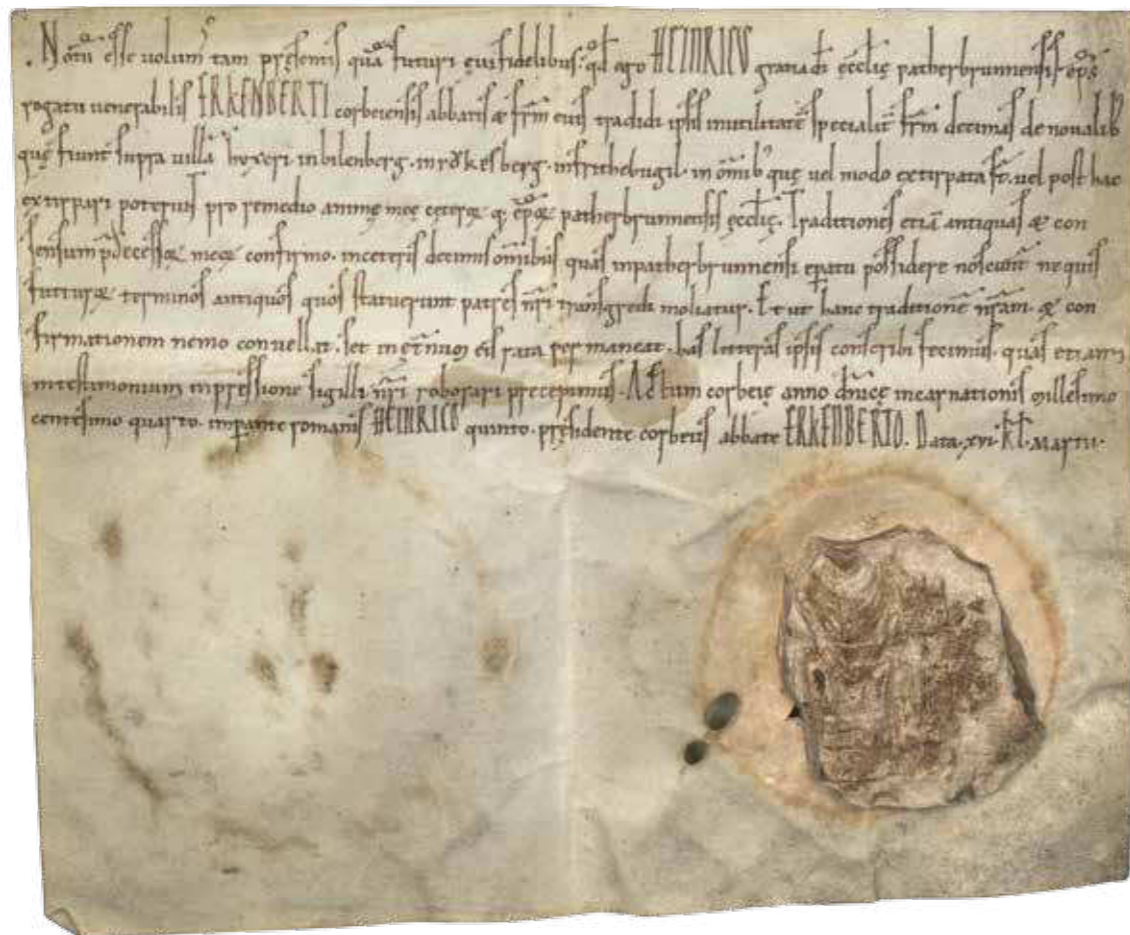 Notū esse uolumꝰ tam pręsentis quā futuri ęui fidelibus. qđ ego HEINRICVS gratia di ęcclię patherbrunnensis epc̄
rogatu uenerabilis ERKENBERTI corbeiensis abbatis & frm̄ eius tradidi ipsis in utilitatē specialit̄ frm̄ decimas de noualibꝰ
quę fiunt supra uillā hvxeri in bilenberg. in rökesberg. in frithebugil. in om̄ibꝰ quę uel modo extirpata st̄. uel post hac
extirpari poterunt pro remedio animę meę ceterorꝝ q; ep̄orꝝ patherbrunnensis ęcclię. Traditiones etiā antiquas & con
sensum p̄decessorꝝ meorꝝ confirmo. in ceteris decimis om̄ibus quas in patherbrunnensi ep̄atu possidere noscunt̄ ne quis
futurorꝝ terminos antiquos quos statuerunt patres nr̄i transgredi moliatur. Et ut hanc traditionē nr̄am. & con
firmationem nemo conuellat. set in et̄num eis rata permaneat. has litteras ipsis conscribi fecimus. quas etiam
in testimonium impressione sigilli nr̄i roborari precepimus. Actum corbeię anno dn̄icę incarnationis millesimo
centesimo quarto. imp̄ante romanis HEINRICO quinto. pręsidente corbeiis abbate ERKENBERTO. Data. xvi. kl̄. martii.